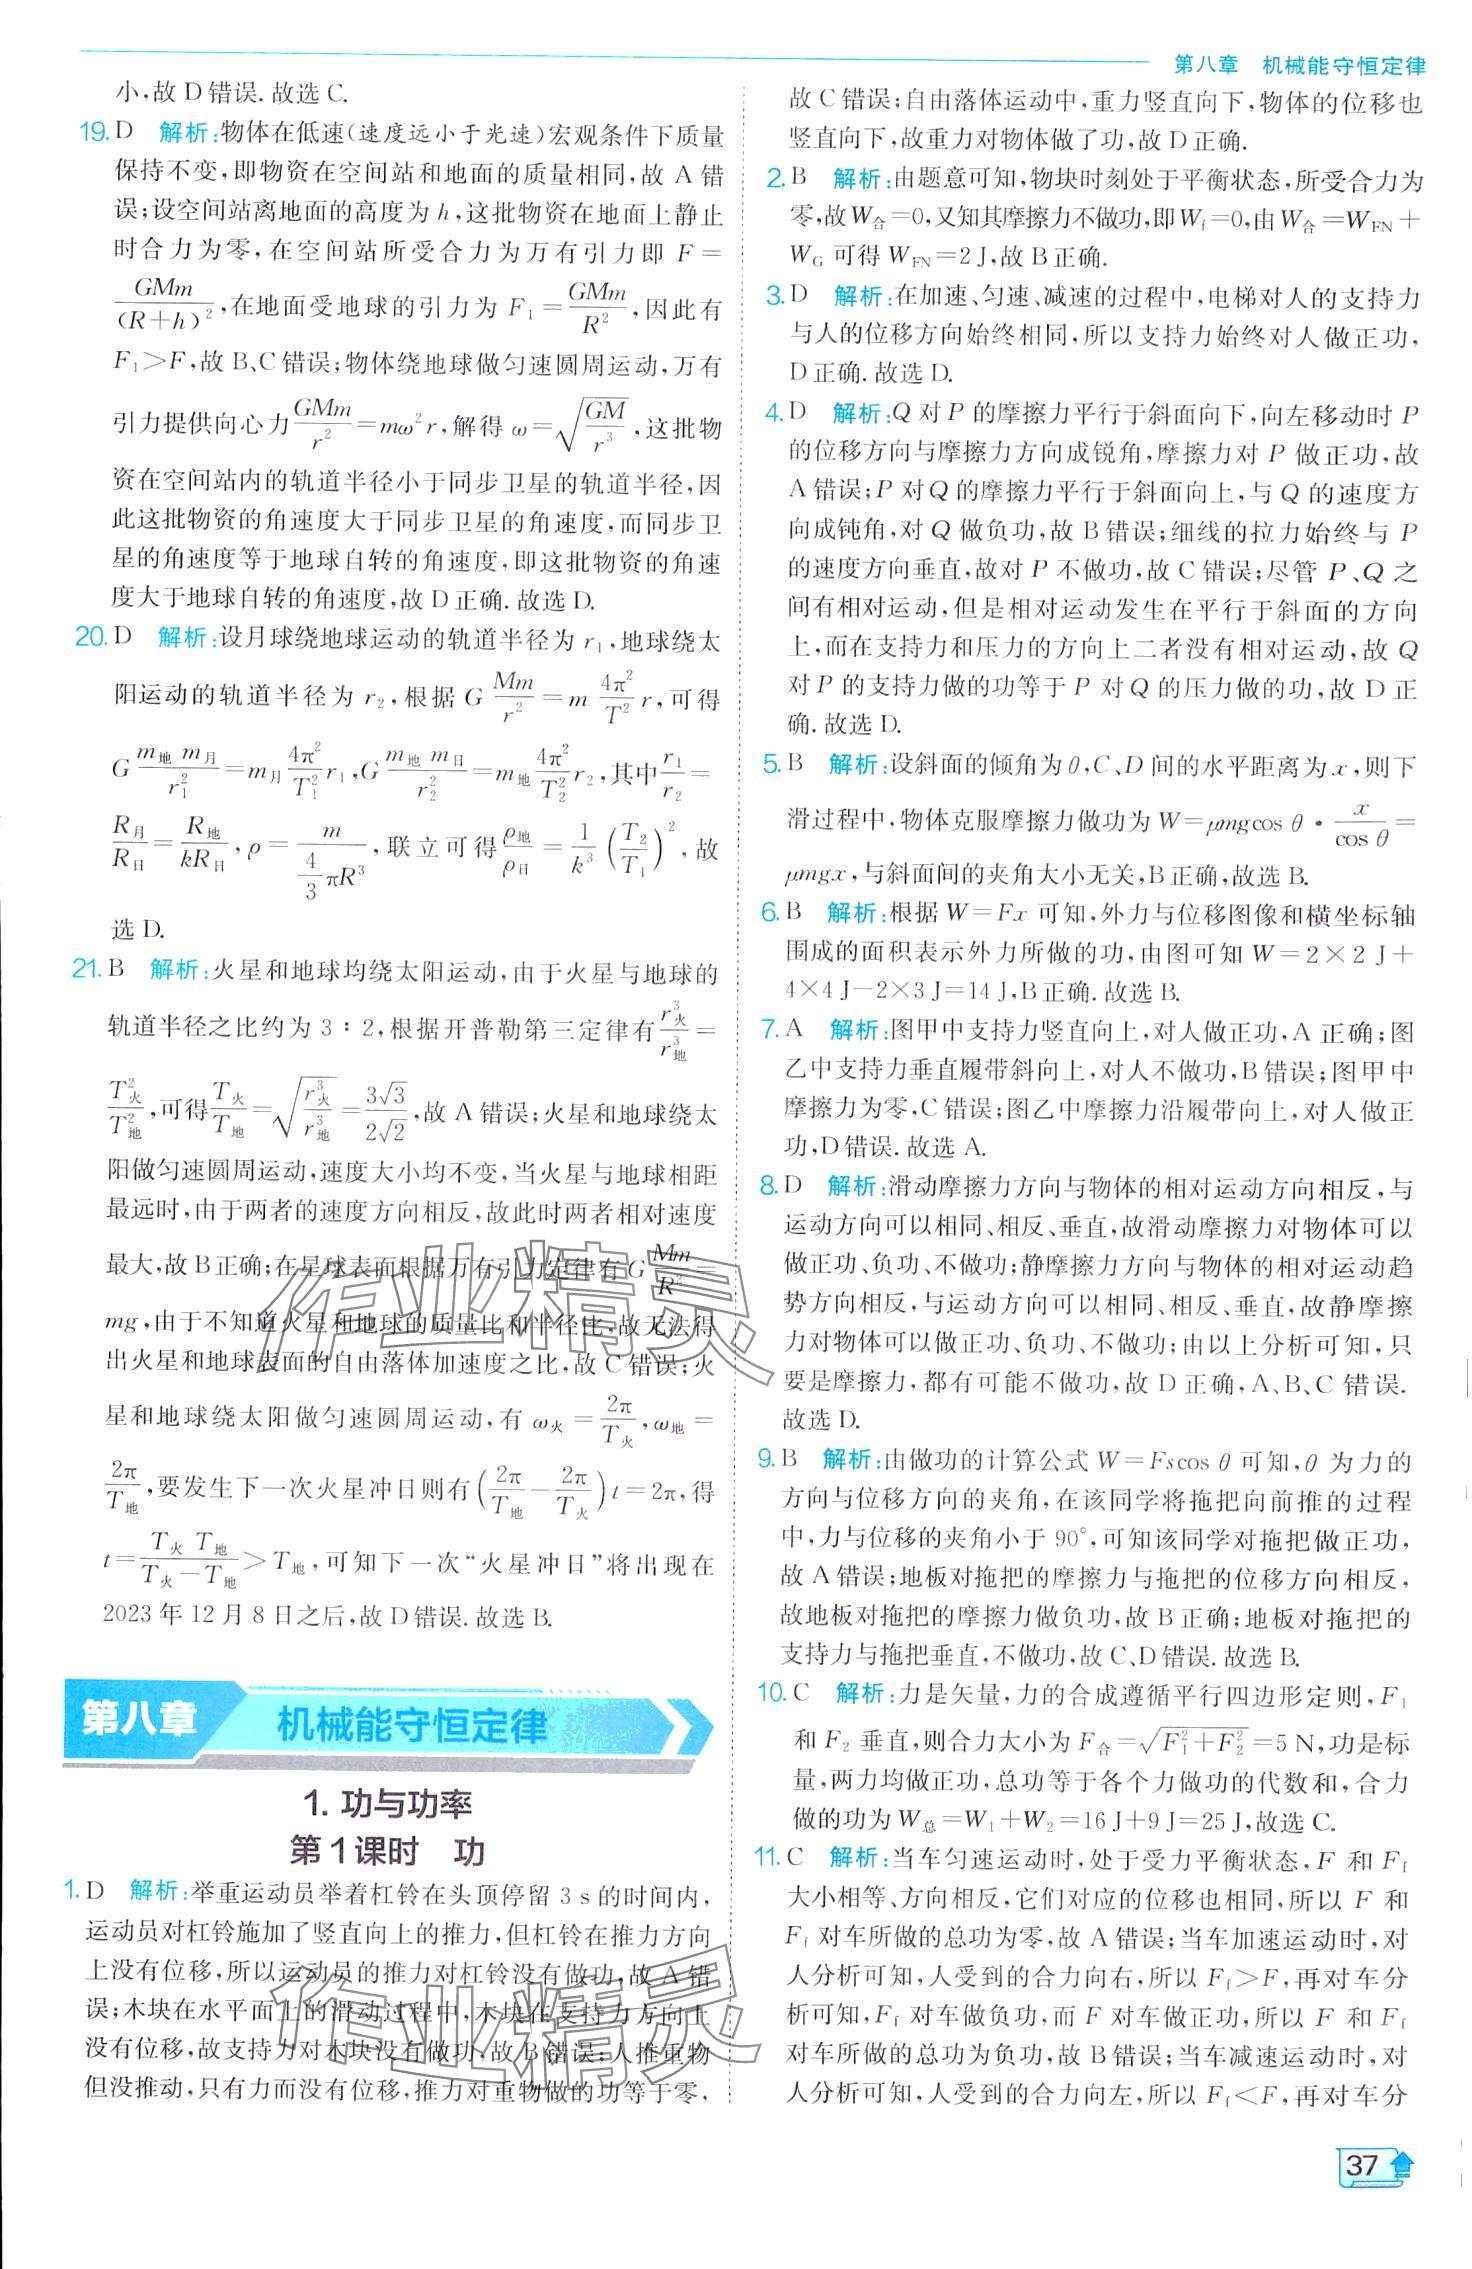 第八章　机械能守恒定律
小,故 D 错误. 故选 C.
19. D　解析:物体在低速(速度远小于光速)宏观条件下质量
保持不变,即物资在空间站和地面的质量相同,故 A 错
误;设空间站离地面的高度为 h,这批物资在地面上静止
时合力为零,在空间站所受合力为万有引力即 F =
\frac{GMm}{(R+h)^2},在地面受地球的引力为 F_1=\frac{GMm}{R^2},因此有
F_1>F,故 B、C 错误;物体绕地球做匀速圆周运动,万有
引力提供向心力\frac{GMm}{r^2}=mω^2r,解得 ω=\sqrt{\frac{GM}{r^3}},这批物
资在空间站内的轨道半径小于同步卫星的轨道半径,因
此这批物资的角速度大于同步卫星的角速度,而同步卫
星的角速度等于地球自转的角速度,即这批物资的角速
度大于地球自转的角速度,故 D 正确. 故选 D.
20. D　解析:设月球绕地球运动的轨道半径为 r_1,地球绕太
阳运动的轨道半径为 r_2,根据 G\frac{Mm}{r^2}=m\frac{4π^2}{T^2}r,可得
G\frac{m_地 m_月}{r_1^2}=m_月\frac{4π^2}{T_1^2}r_1,G\frac{m_地 m_日}{r_2^2}=m_地\frac{4π^2}{T_2^2}r_2,其中\frac{r_1}{r_2}=
\frac{R_月}{R_日}=\frac{R_地}{kR_日},ρ=\frac{m}{\frac{4}{3}πR^3},联立可得\frac{ρ_地}{ρ_日}=\frac{1}{k^3}(\frac{T_2}{T_1})^2,故
选 D.
21. B　解析:火星和地球均绕太阳运动,由于火星与地球的
轨道半径之比约为 3∶2,根据开普勒第三定律有\frac{r_火^3}{r_地^3}=
\frac{T_火^2}{T_地^2},可得\frac{T_火}{T_地}=\sqrt{\frac{r_火^3}{r_地^3}}=\frac{3\sqrt{3}}{2\sqrt{2}},故 A 错误;火星和地球绕太
阳做匀速圆周运动,速度大小均不变,当火星与地球相距
最远时,由于两者的速度方向相反,故此时两者相对速度
最大,故 B 正确;在星球表面根据万有引力定律有 G\frac{Mm}{R^2}=
mg,由于不知道火星和地球的质量比和半径比,故无法得
出火星和地球表面的自由落体加速度之比,故 C 错误;火
星和地球绕太阳做匀速圆周运动,有 ω_火=\frac{2π}{T_火},ω_地=
\frac{2π}{T_地},要发生下一次火星冲日则有(\frac{2π}{T_地}-\frac{2π}{T_火})t=2π,得
t=\frac{T_火 T_地}{T_火-T_地}>T_地,可知下一次“火星冲日”将出现在
2023 年 12 月 8 日之后,故 D 错误. 故选 B.
第八章　机械能守恒定律
1. 功与功率
第 1 课时　功
1. D　解析:举重运动员举着杠铃在头顶停留 3 s 的时间内,
运动员对杠铃施加了竖直向上的推力,但杠铃在推力方向
上没有位移,所以运动员的推力对杠铃没有做功,故 A 错
误;木块在水平面上的滑动过程中,木块在支持力方向上
没有位移,故支持力对木块没有做功,故 B 错误;人推重物
但没推动,只有力而没有位移,推力对重物做的功等于零,
故 C 错误;自由落体运动中,重力竖直向下,物体的位移也
竖直向下,故重力对物体做了功,故 D 正确.
2. B　解析:由题意可知,物块时刻处于平衡状态,所受合力为
零,故W_合=0,又知其摩擦力不做功,即W_f=0,由 W_合=W_{FN}+
W_G 可得 W_{FN}=2 J,故 B 正确.
3. D　解析:在加速、匀速、减速的过程中,电梯对人的支持力
与人的位移方向始终相同,所以支持力始终对人做正功,
D 正确. 故选 D.
4. D　解析:Q 对 P 的摩擦力平行于斜面向下,向左移动时 P
的位移方向与摩擦力方向成锐角,摩擦力对 P 做正功,故
A 错误;P 对 Q 的摩擦力平行于斜面向上,与 Q 的速度方
向成钝角,对 Q 做负功,故 B 错误;细线的拉力始终与 P
的速度方向垂直,故对 P 不做功,故 C 错误;尽管 P、Q 之
间有相对运动,但是相对运动发生在平行于斜面的方向
上,而在支持力和压力的方向上二者没有相对运动,故 Q
对 P 的支持力做的功等于 P 对 Q 的压力做的功,故 D 正
确. 故选 D.
5. B　解析:设斜面的倾角为 θ,C、D 间的水平距离为 x,则下
滑过程中,物体克服摩擦力做功为 W=μmgcos θ·\frac{x}{cos θ}=
μmgx,与斜面间的夹角大小无关,B 正确,故选 B.
6. B　解析:根据 W=Fx 可知,外力与位移图像和横坐标轴
围成的面积表示外力所做的功,由图可知 W=2×2 J+
4×4 J-2×3 J=14 J,B 正确. 故选 B.
7. A　解析:图甲中支持力竖直向上,对人做正功,A 正确;图
乙中支持力垂直履带斜向上,对人不做功,B 错误;图甲中
摩擦力为零,C 错误;图乙中摩擦力沿履带向上,对人做正
功,D 错误. 故选 A.
8. D　解析:滑动摩擦力方向与物体的相对运动方向相反,与
运动方向可以相同、相反、垂直,故滑动摩擦力对物体可以
做正功、负功、不做功;静摩擦力方向与物体的相对运动趋
势方向相反,与运动方向可以相同、相反、垂直,故静摩擦
力对物体可以做正功、负功、不做功;由以上分析可知,只
要是摩擦力,都有可能不做功,故 D 正确,A、B、C 错误.
故选 D.
9. B　解析:由做功的计算公式 W=Fscos θ 可知,θ 为力的
方向与位移方向的夹角,在该同学将拖把向前推的过程
中,力与位移的夹角小于 90°,可知该同学对拖把做正功,
故 A 错误;地板对拖把的摩擦力与拖把的位移方向相反,
故地板对拖把的摩擦力做负功,故 B 正确;地板对拖把的
支持力与拖把垂直,不做功,故 C、D 错误. 故选 B.
10. C　解析:力是矢量,力的合成遵循平行四边形定则,F_1
和 F_2 垂直,则合力大小为 F_合=\sqrt{F_1^2+F_2^2}=5 N,功是标
量,两力均做正功,总功等于各个力做功的代数和,合力
做的功为 W_总=W_1+W_2=16 J+9 J=25 J,故选 C.
11. C　解析:当车匀速运动时,处于受力平衡状态,F 和 F_f
大小相等、方向相反,它们对应的位移也相同,所以 F 和
F_f 对车所做的总功为零,故 A 错误;当车加速运动时,对
人分析可知,人受到的合力向右,所以 F_f>F,再对车分
析可知,F_f 对车做负功,而 F 对车做正功,所以 F 和 F_f
对车所做的总功为负功,故 B 错误;当车减速运动时,对
人分析可知,人受到的合力向左,所以 F_f<F,再对车分
37
作业精灵
作业精灵